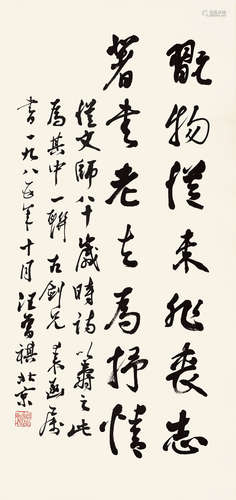 翫物從來非喪志
著書老去為抒情
從文師八十歲時詩以壽之此
為其中一聯古劍兄來函屬
書一九八五年十月汪曾祺北京